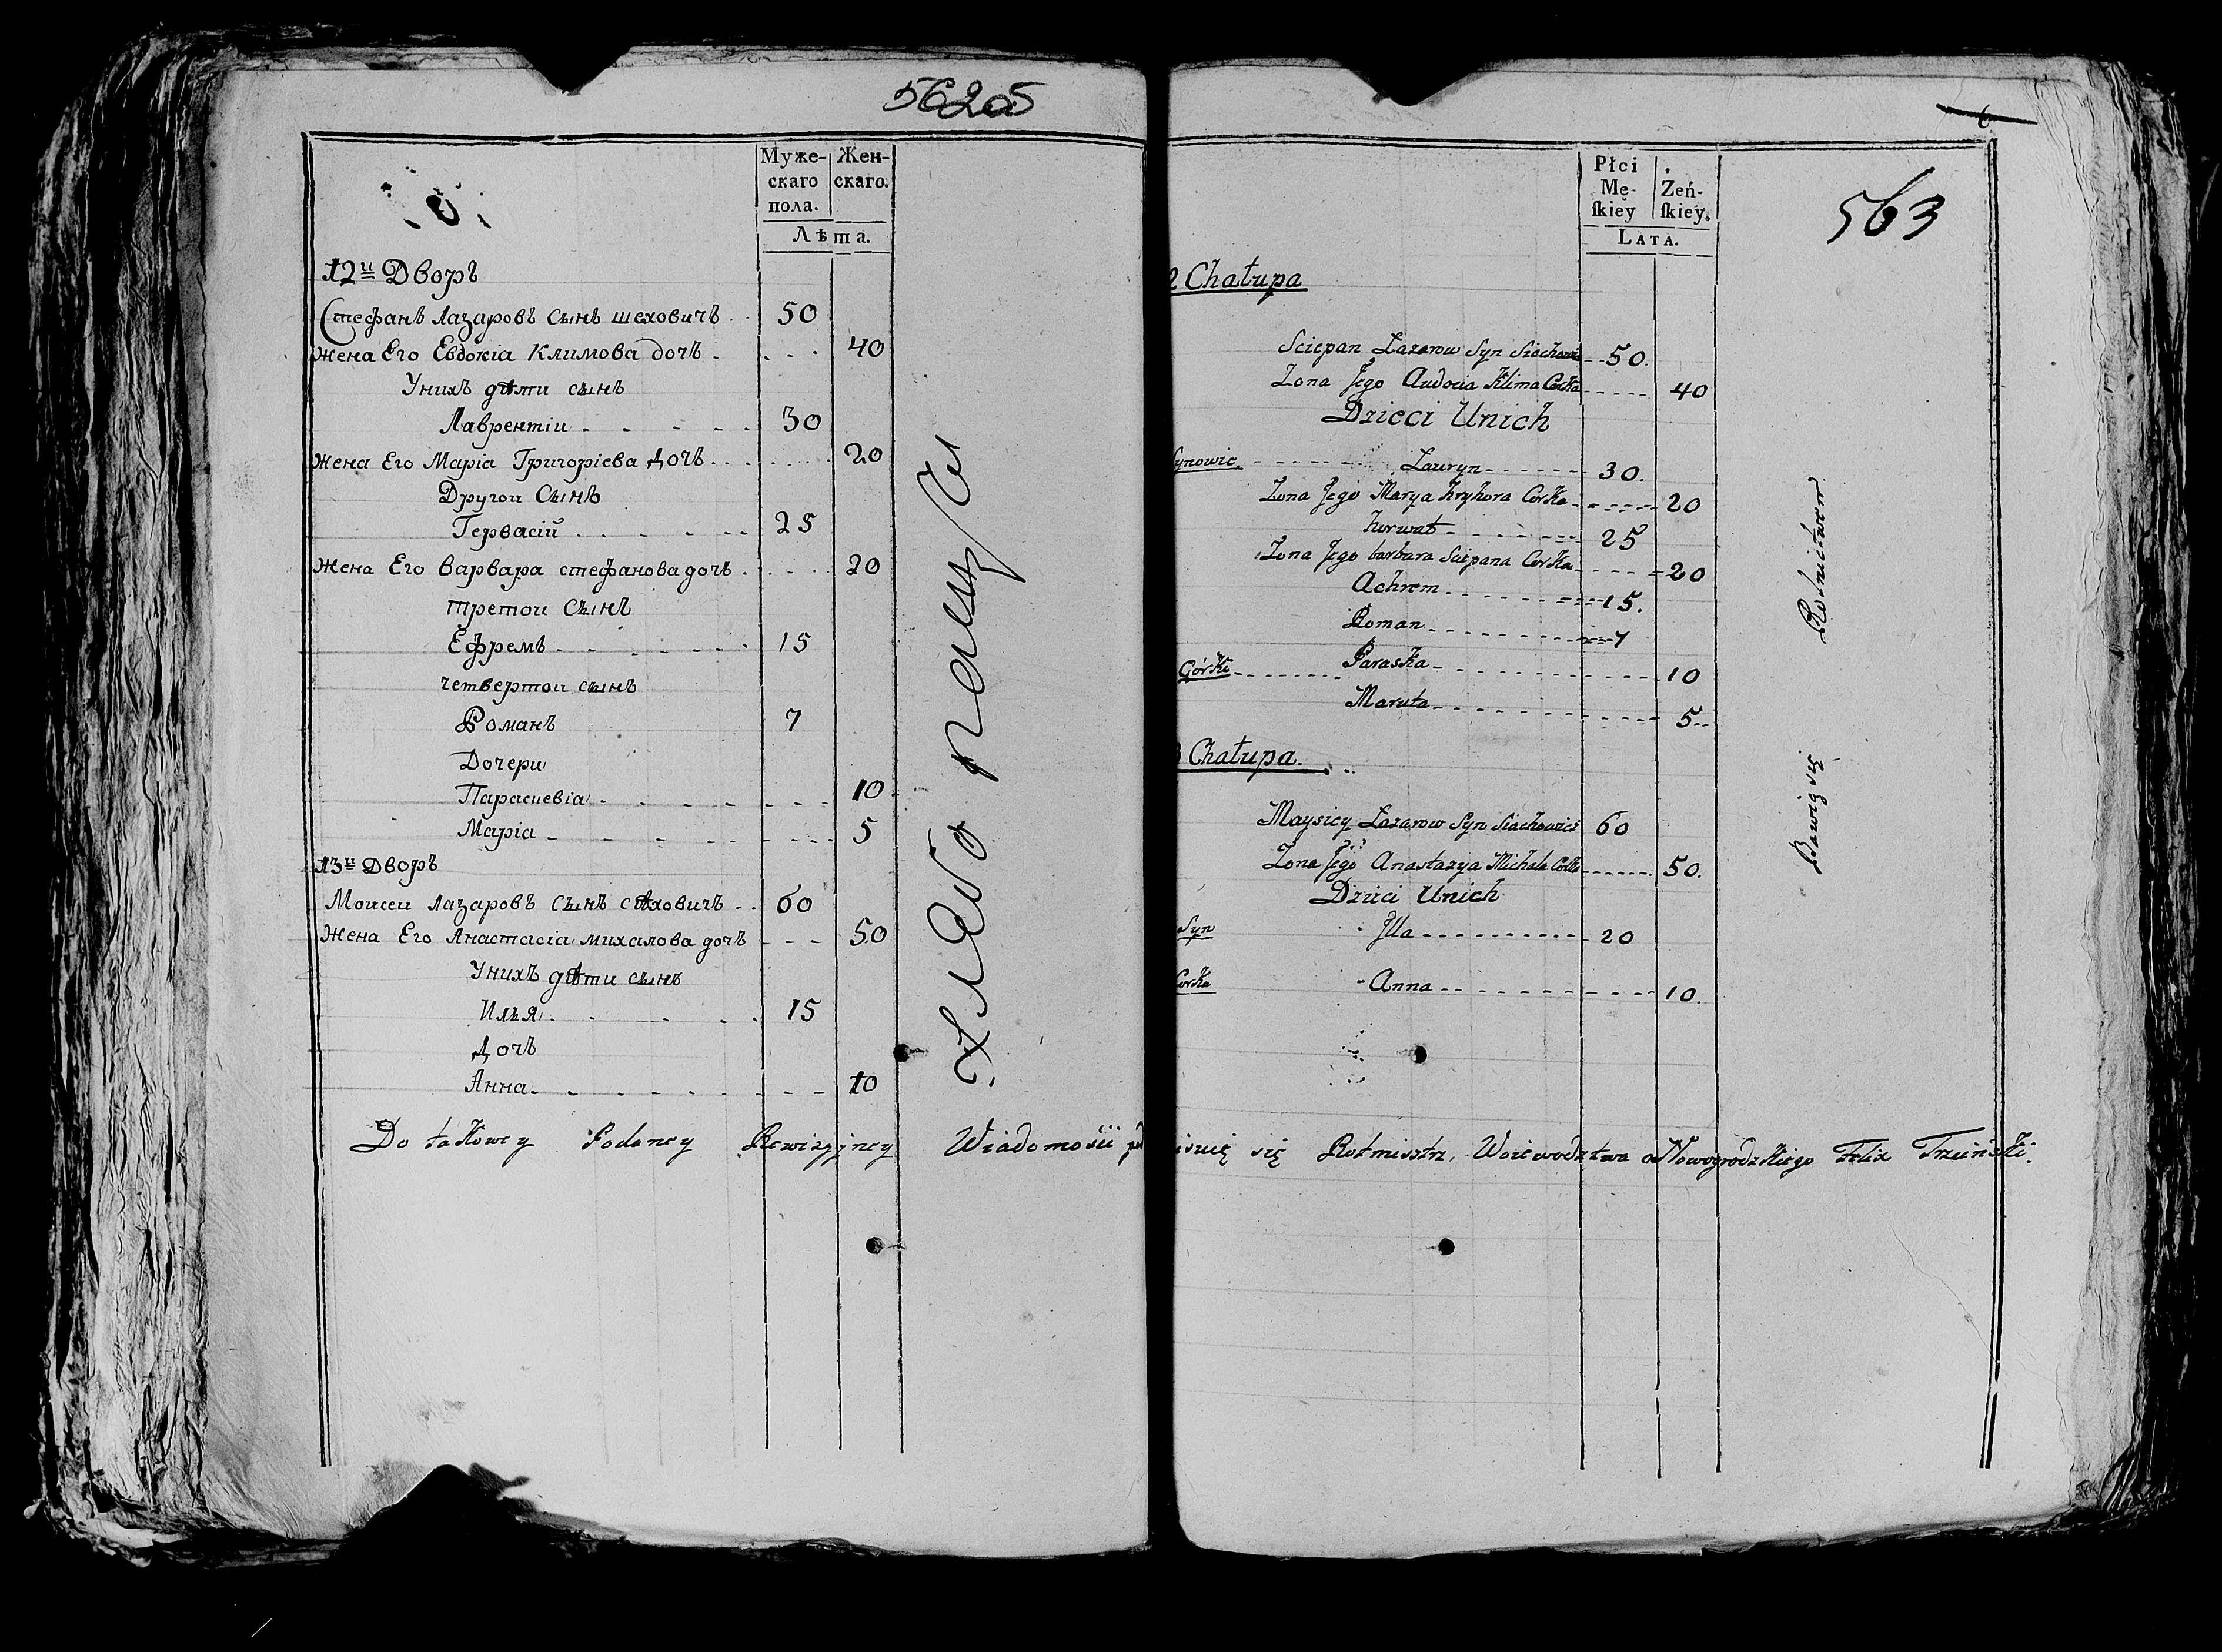 5620б
Муже- Жен-
скаго скаго.
пола.
Лѣта.
12й Дворъ
Стефанъ Лазаровъ сынъ шеховичъ 50
Жена Его Евдокіа Климова дочъ 40
Унихъ дѣти сынъ
Лаврентіи 30
Жена Его Маріа Григоріева дочъ 20
Другои Сынъ
Гервасій 25
Жена Его Варвара стефанова дочъ 20
третои Сынъ
Ефремъ 15
четвертои сынъ
Романъ 7
Дочери
Параскевіа 10
Маріа 5
13й Дворъ
Моисеи Лазаровъ сынъ сѣховичъ 60
Жена Его Анастасіа михалова дочъ 50
Унихъ дѣти сынъ
Илья 15
Дочъ
Анна 10
хлѣбо пашцы
6
563
Płci
Mę- Żeń-
ſkiey ſkiey.
Lata.
2 Chałupa
Sciepan Łazarow Syn Siechowic 50.
Zona Jego Audocia Klima Corka 40
Dzieci Unich
Synowie. Lauryn 30.
Zona Jego Marya hryhora Corka 20
hurwat 25
Zona Jego barbara Sciepana Corka 20
Achrem 15.
Roman 7
Górki Paraska 10
Maruta 5
3 Chałupa.
Maysiey Łazarow Syn Siachowicz 60
Zona Jego Anastazya Michała Corka 50.
Dzieci Unich
Syn Jlla 20
Corka Anna 10.
Bawią się Rolnictwem
Do takowey Podaney Rewizyiney Wiadomości pisuię się Rotmisztrz, Woiewodztwa Nowogrodzkiego Felix